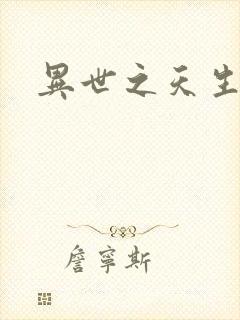 異世之天生
詹寧斯